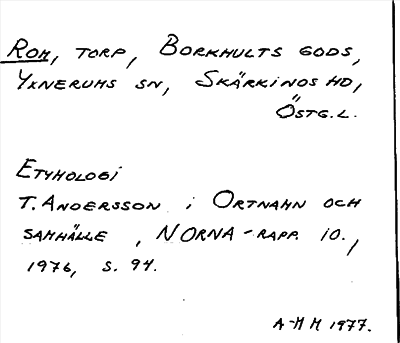 Rom, torp, Borkhults gods,
Yxnerums sn, Skärkinds hd,
Östg.l.
Etymologi
T. Andersson i Ortnamn och
samhälle, NORNA-rapp. 10.,
1976, s. 94.
A-M M 1977.